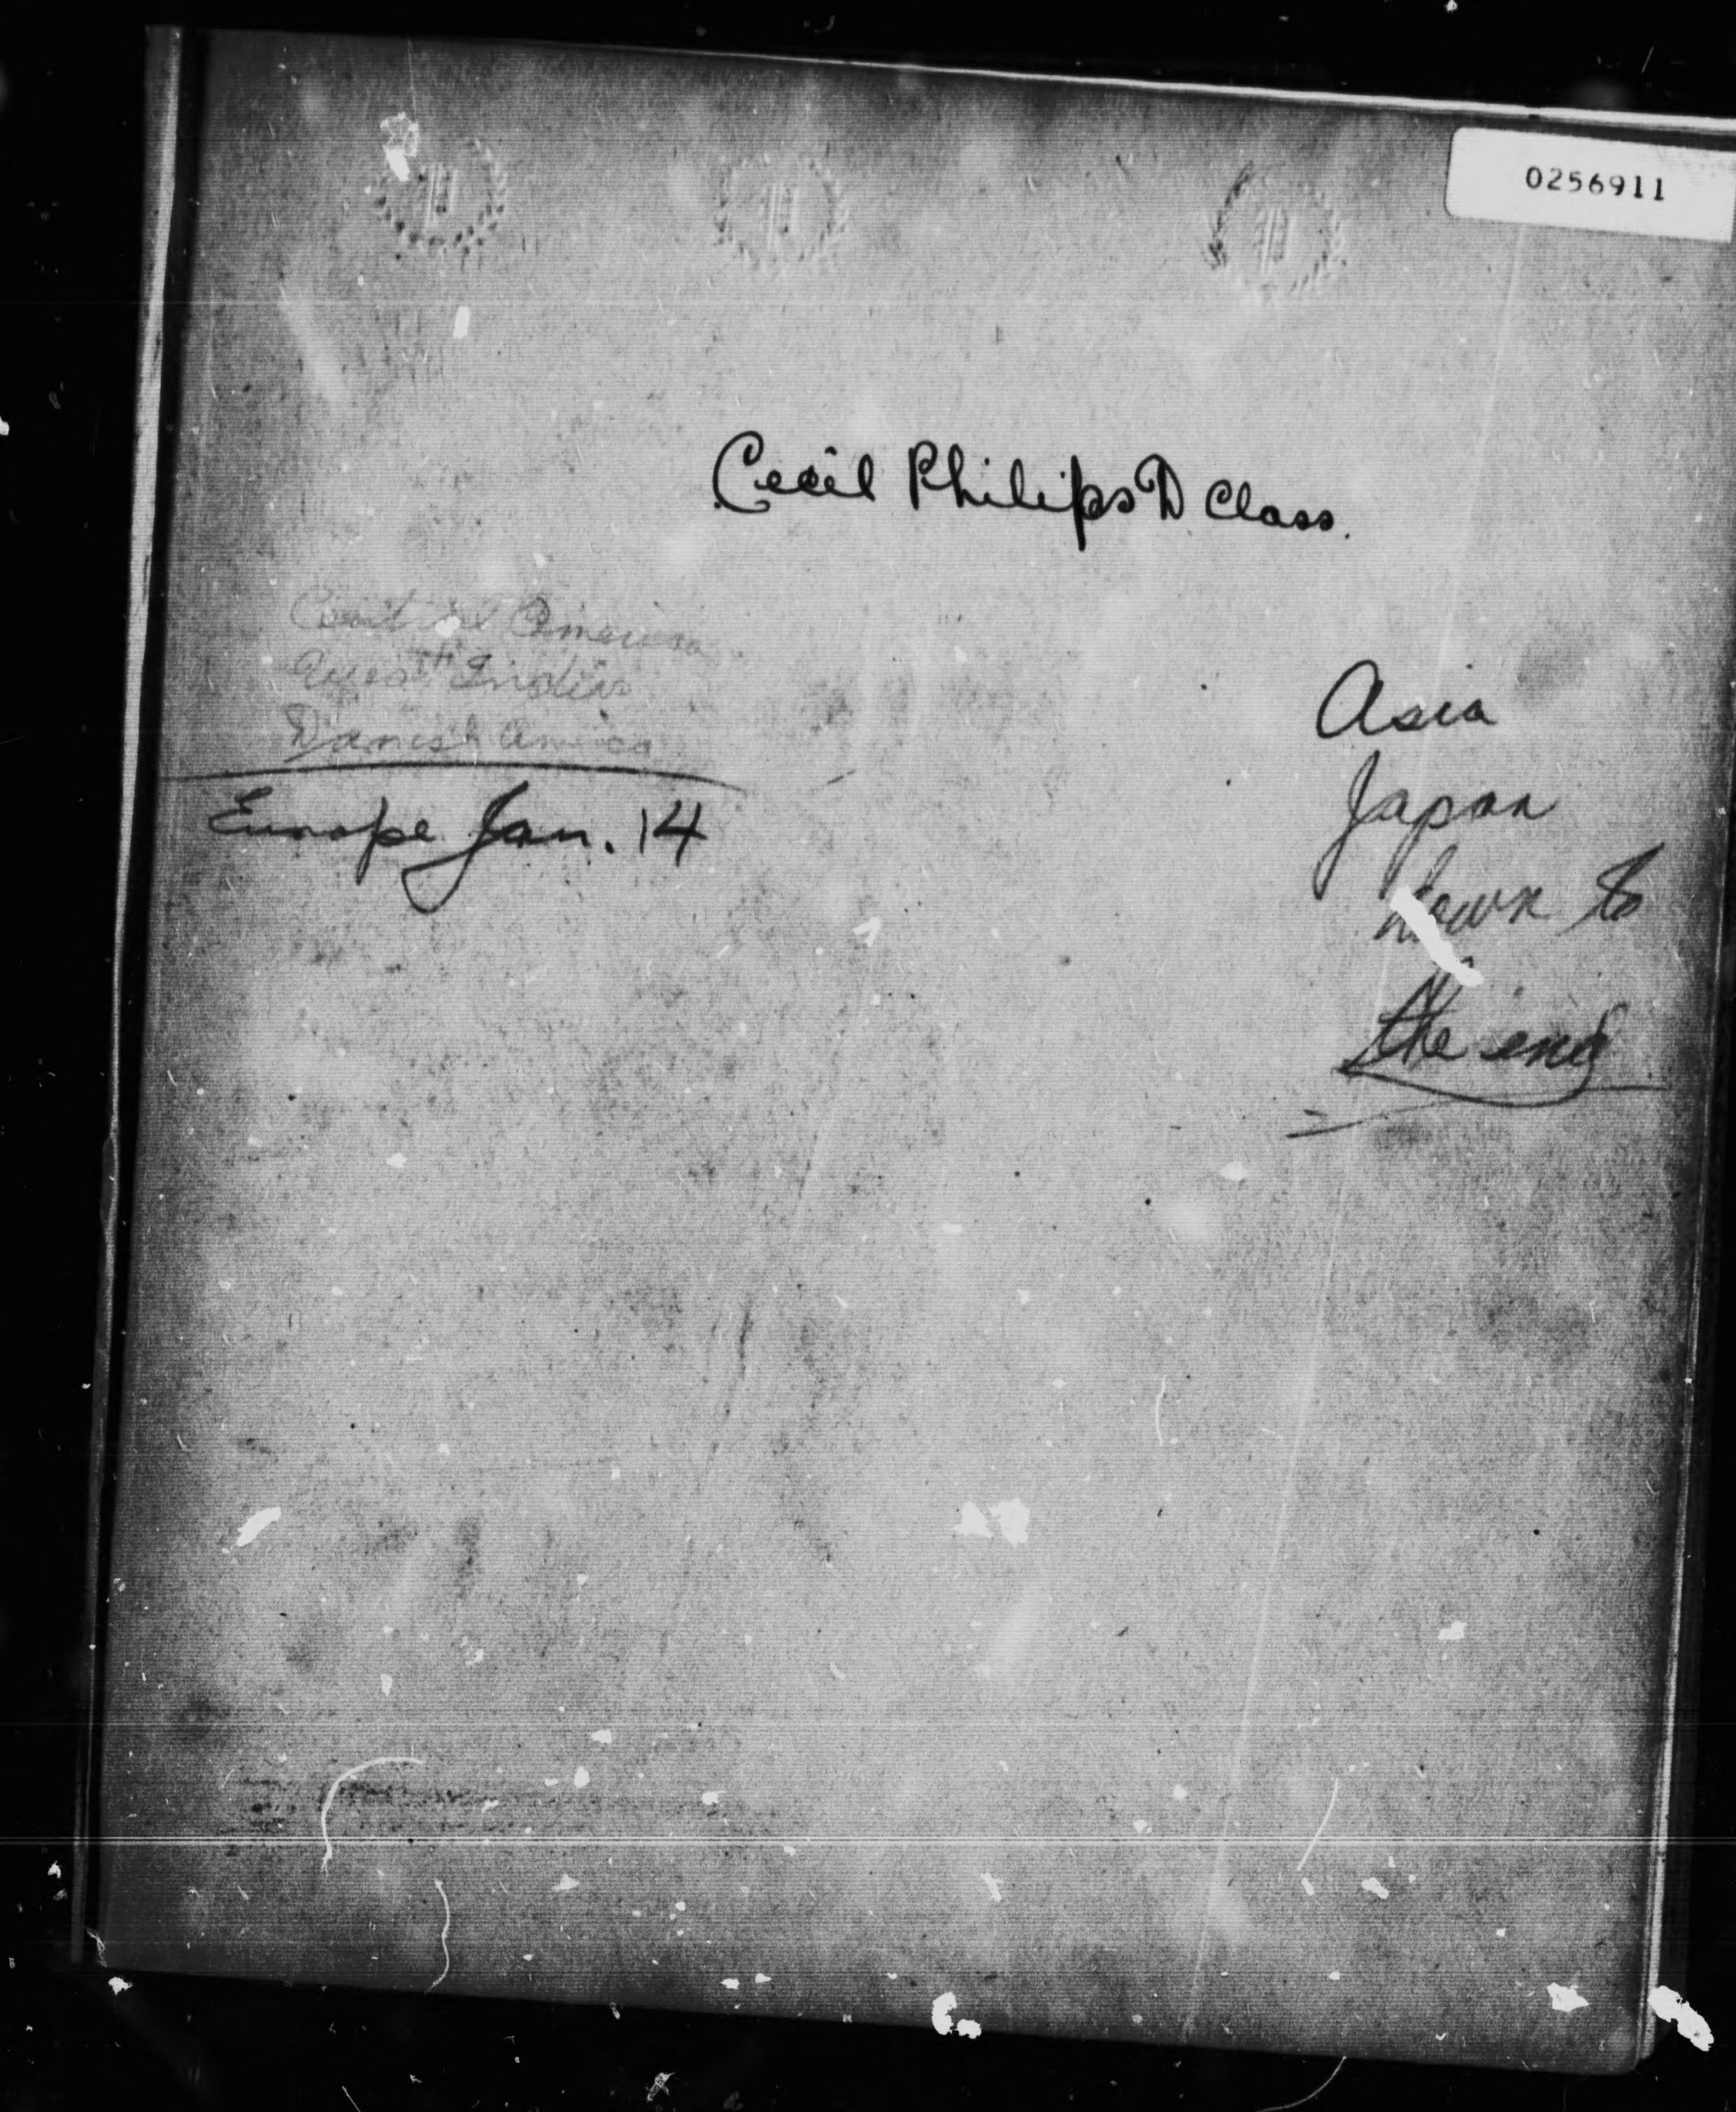 0256911
Cecil Philips D Class.
Central America
West Indies
Danish America
Europe Jan. 14
Asia
Japan
down to
the end